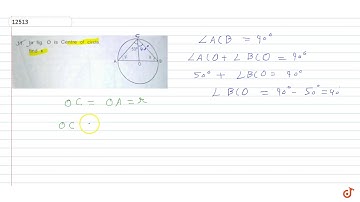 12513
In fig. O is Centre of circle
find x
C
50°
A
O
B
∠ACB = 90°
∠ACO + ∠BCO = 90°
50° + ∠BCO = 90°
∠BCO = 90° - 50° = 40
OC = OA = r
OC
doubtnut